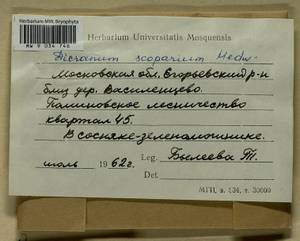 Herbarium MW, Bryophyta
MW 9 034 746
Herbarium Universitatis Mosquensis
Dicranum scoparium Hedw.
Московская обл. Егорьевский р-н
близ дер. Василенцево.
Полиновское лесничество
квартал 45.
В сосняке-зеленомошнике.
июль 1962 г. Leg. Былеева Т.
Det.
МГП, з. 534, т. 30000